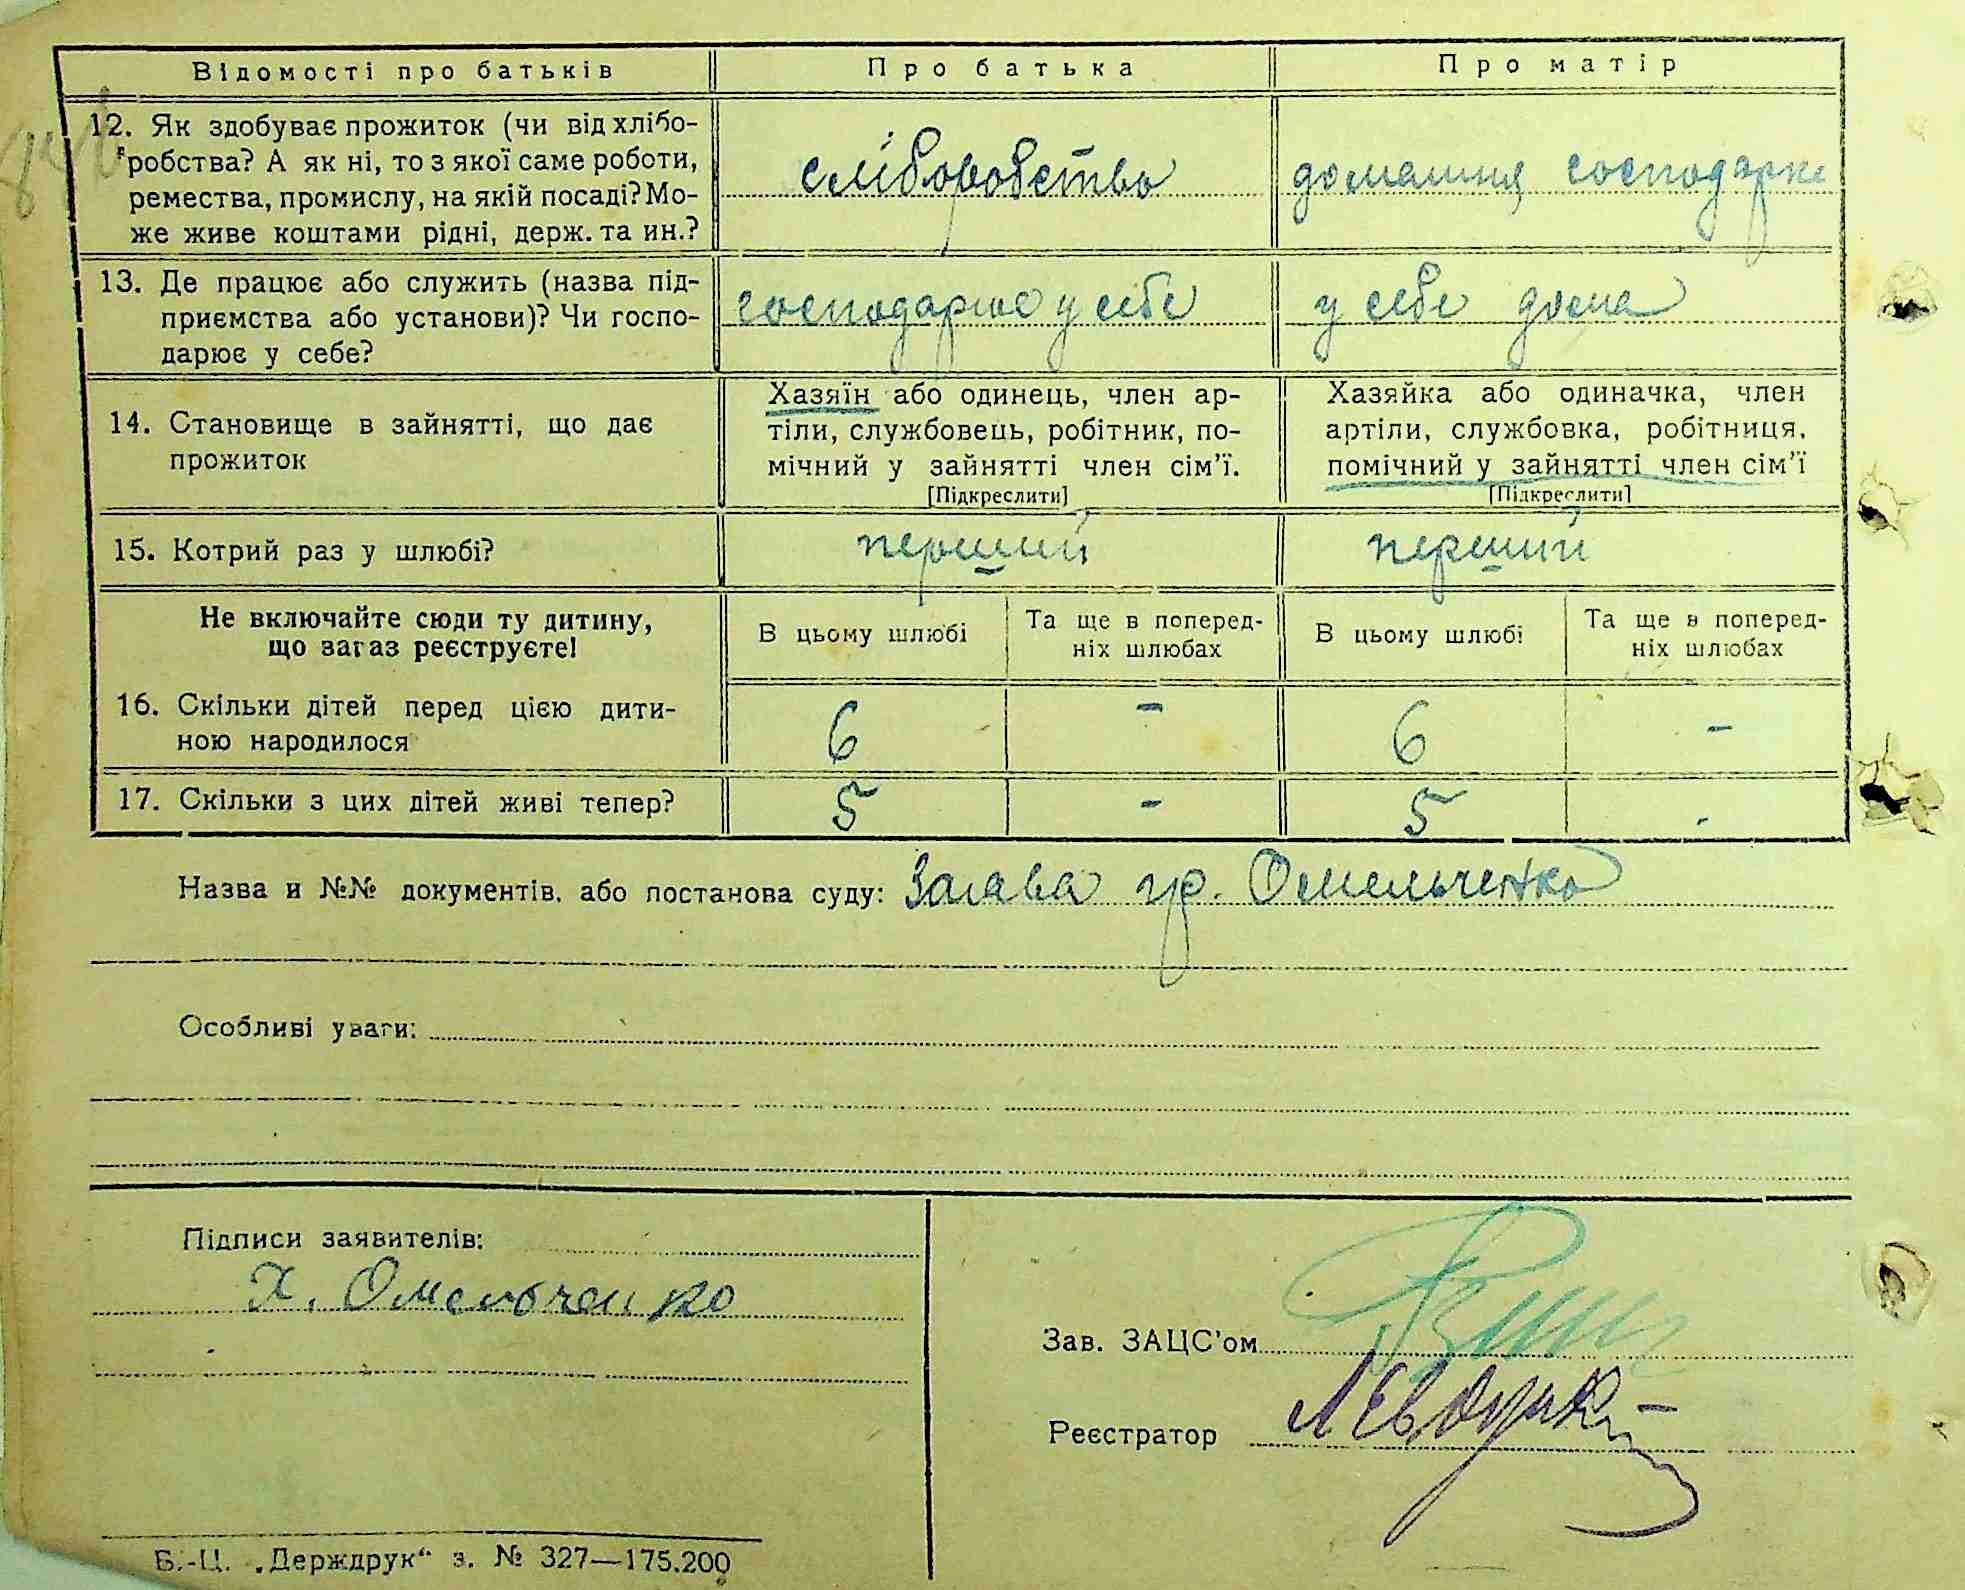 Відомості про батьків
Про батька
Про матір
12. Як здобуває прожиток (чи від хлібо-
робства? А як ні, то з якої саме роботи,
ремества, промислу, на якій посаді? Мо-
же живе коштами рідні, держ. та ин.?
хліборобство
домашня господарка
13. Де працює або служить (назва під-
приємства або установи)? Чи госпо-
дарює у себе?
господарює у себе
у себе дома
14. Становище в зайнятті, що дає
прожиток
Хазяїн або одинець, член ар-
тіли, службовець, робітник, по-
мічний у зайнятті член сім'ї.
[Підкреслити]
Хазяйка або одиначка, член
артіли, службовка, робітниця,
помічний у зайнятті член сім'ї
[Підкреслити]
15. Котрий раз у шлюбі?
перший
перший
Не включайте сюди ту дитину,
що зараз реєструєте!
В цьому шлюбі
Та ще в поперед-
ніх шлюбах
В цьому шлюбі
Та ще в поперед-
ніх шлюбах
16. Скільки дітей перед цією дити-
ною народилося
6
-
6
-
17. Скільки з цих дітей живі тепер?
5
-
5
-
Назва и №№ документів, або постанова суду: Заява гр. Омельченко
Особливі уваги:
Підписи заявителів:
Х. Омельченко
Зав. ЗАЦС'ом
Реєстратор
Б.-Ц. „Держдрук“ з. № 327—175.200